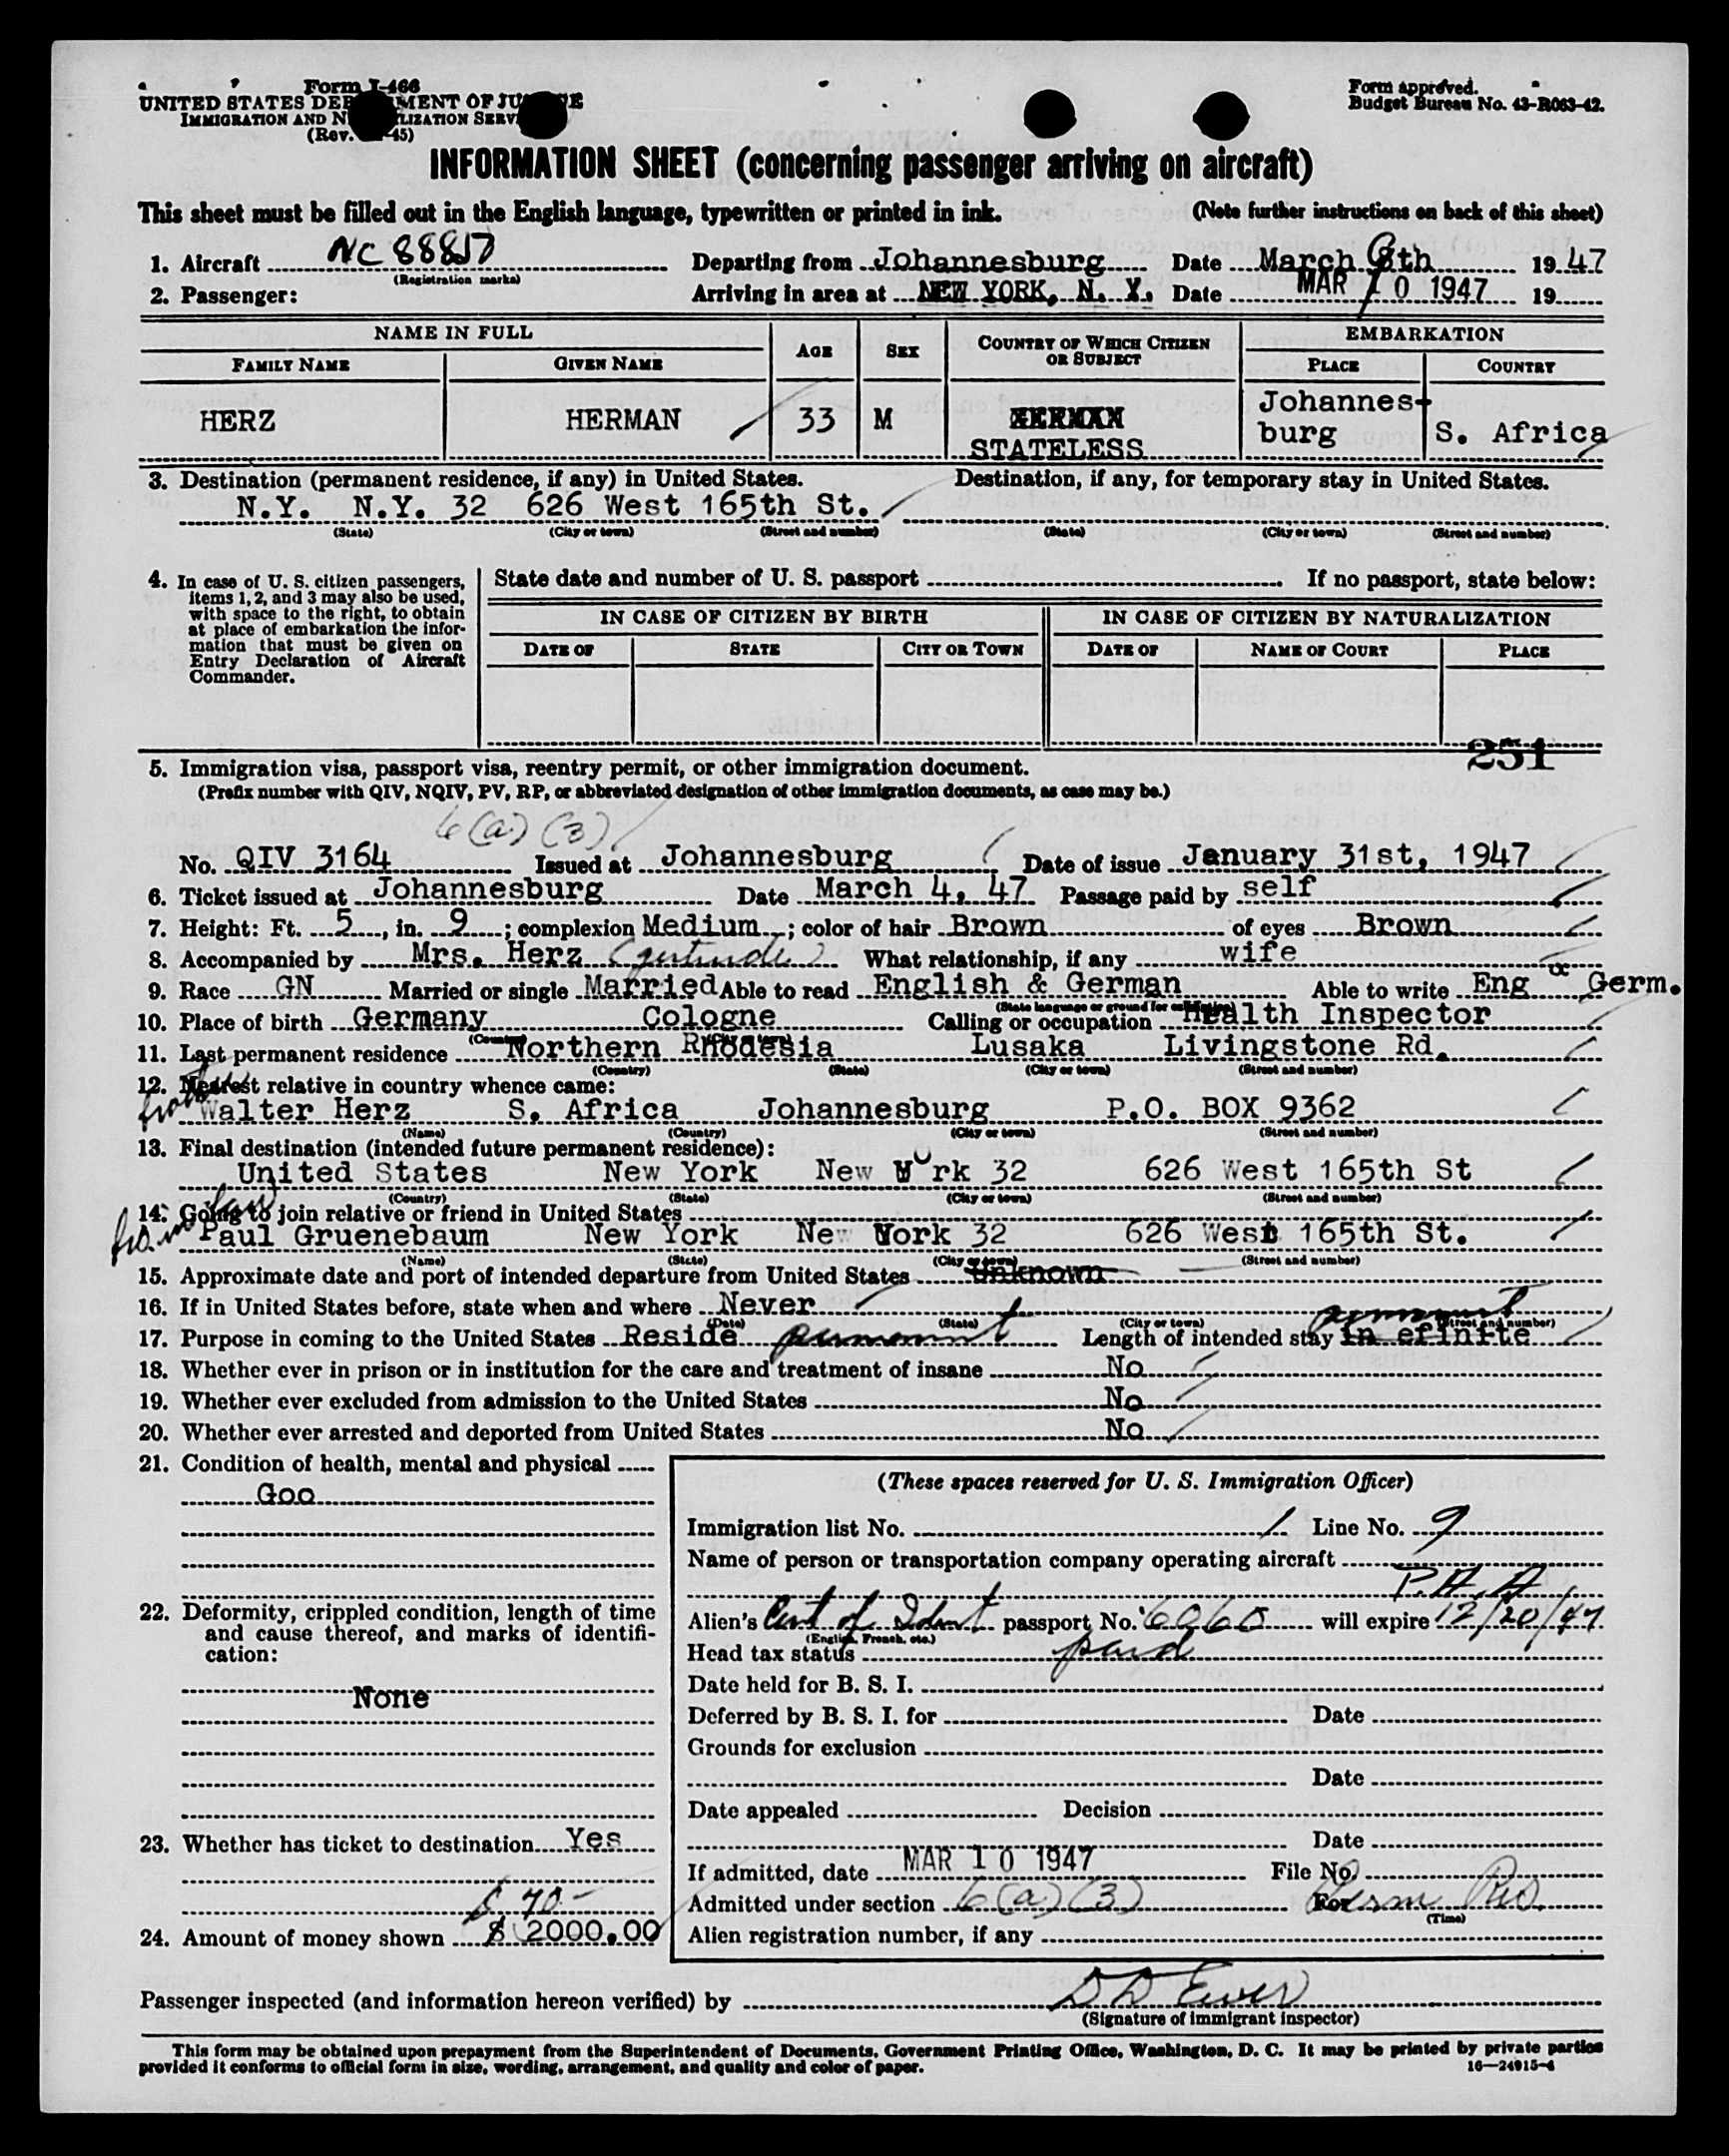 Form I-466
UNITED STATES DEPARTMENT OF JUSTICE
IMMIGRATION AND NATURALIZATION SERVICE
(Rev. 45)
Form approved.
Budget Bureau No. 43-R063-42.
INFORMATION SHEET (concerning passenger arriving on aircraft)
This sheet must be filled out in the English language, typewritten or printed in ink. (Note further instructions on back of this sheet)
1. Aircraft NC 88857 Departing from Johannesburg Date March 8th 1947
(Registration marks)
2. Passenger: Arriving in area at NEW YORK, N. Y. Date MAR 10 1947 19
NAME IN FULL AGE SEX COUNTRY OF WHICH CITIZEN OR SUBJECT EMBARKATION
FAMILY NAME GIVEN NAME PLACE COUNTRY
HERZ HERMAN 33 M STATELESS Johannes-burg S. Africa
3. Destination (permanent residence, if any) in United States. Destination, if any, for temporary stay in United States.
N.Y. N.Y. 32 626 West 165th St.
(State) (City or town) (Street and number) (State) (City or town) (Street and number)
4. In case of U. S. citizen passengers, items 1, 2, and 3 may also be used, with space to the right, to obtain at place of embarkation the information that must be given on Entry Declaration of Aircraft Commander.
State date and number of U. S. passport If no passport, state below:
IN CASE OF CITIZEN BY BIRTH IN CASE OF CITIZEN BY NATURALIZATION
DATE OF STATE CITY OR TOWN DATE OF NAME OF COURT PLACE
251
5. Immigration visa, passport visa, reentry permit, or other immigration document.
(Prefix number with QIV, NQIV, PV, RP, or abbreviated designation of other immigration documents, as case may be.)
6(a)(3)
No. QIV 3164 Issued at Johannesburg Date of issue January 31st, 1947
6. Ticket issued at Johannesburg Date March 4, 47 Passage paid by self
7. Height: Ft. 5, in. 9; complexion Medium; color of hair Brown of eyes Brown
8. Accompanied by Mrs. Herz (gertrude) What relationship, if any wife
9. Race GN Married or single Married Able to read English & German Able to write Eng & Germ.
(State language or ground for exemption)
10. Place of birth Germany Cologne Calling or occupation Health Inspector
(Country) (City or town)
11. Last permanent residence Northern Rhodesia Lusaka Livingstone Rd.
(Country) (State) (City or town) (Street and number)
12. Nearest relative in country whence came:
Walter Herz S. Africa Johannesburg P.O. BOX 9362
(Name) (Country) (City or town) (Street and number)
13. Final destination (intended future permanent residence):
United States New York New York 32 626 West 165th St
(Country) (State) (City or town) (Street and number)
14. Going to join relative or friend in United States
Paul Gruenebaum New York New York 32 626 West 165th St.
(Name) (State) (City or town) (Street and number)
15. Approximate date and port of intended departure from United States Unknown
16. If in United States before, state when and where Never
(Date) (State) (City or town) (Street and number)
17. Purpose in coming to the United States Reside permanent Length of intended stay in efinite permanent
18. Whether ever in prison or in institution for the care and treatment of insane No
19. Whether ever excluded from admission to the United States No
20. Whether ever arrested and deported from United States No
21. Condition of health, mental and physical
Goo
22. Deformity, crippled condition, length of time and cause thereof, and marks of identification:
None
23. Whether has ticket to destination Yes
£ 70-
24. Amount of money shown $ 2000.00
(These spaces reserved for U. S. Immigration Officer)
Immigration list No. 1 Line No. 9
Name of person or transportation company operating aircraft
P.A.A
Alien's Cert of Ident passport No. 6060 will expire 12/20/47
(English, French, etc.)
Head tax status paid
Date held for B. S. I.
Deferred by B. S. I. for Date
Grounds for exclusion
Date
Date appealed Decision
Date
If admitted, date MAR 10 1947 File No.
Admitted under section 6(a)(3) For Perm Res.
(Time)
Alien registration number, if any
Passenger inspected (and information hereon verified) by
(Signature of immigrant inspector)
This form may be obtained upon prepayment from the Superintendent of Documents, Government Printing Office, Washington, D. C. It may be printed by private parties
provided it conforms to official form in size, wording, arrangement, and quality and color of paper. 16—24915-4